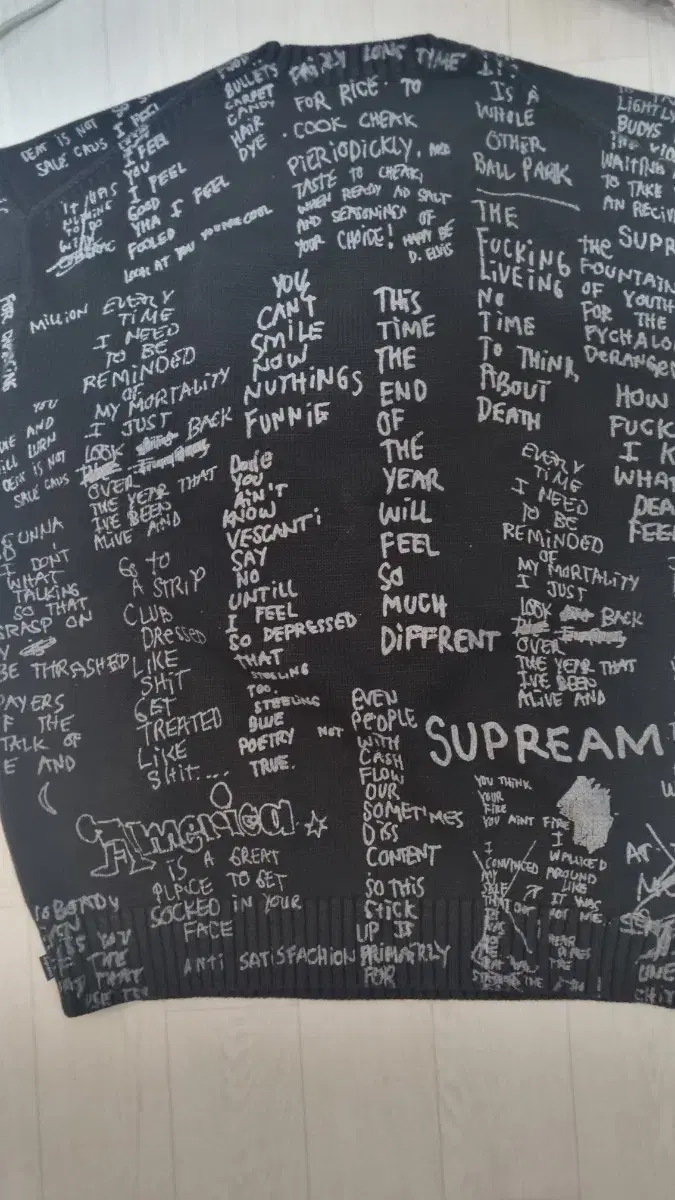 DEAT IS NOT
SALE CAUS
I FEEL
I FEEL
YOU
I FEEL
GOOD
YHA I FEEL
FOOLED
LOOK AT YOU YOUR COOL
BULLETS
CARPET
CANDY
HAIR
DYE
FAIRLY LONG TYME
FOR RICE. TO
COOK CHEAK
PIERIODICKLY, AND
TASTE TO CHEAK,
WHEN READY AD SALT
AND SEASONINGS OF
YOUR CHOICE! HAPPY BE
D. ELVIS
IS A
WHOLE
OTHER
BALL PARK
THE
FUCKING
LIVEING
NO
TIME
TO THINK,
ABOUT
DEATH
LIGHTLY
BUDYS
WAITING
TO TAKE
AN RECIV
THE SUPR
FOUNTAIN
OF YOUTH
FOR THE
PYCHALO
DERANGE
HOW
FUCK
I K
WHAT
DEA
FEEL
MILLION
EVERY
TIME
I NEED
TO BE
REMINDED
OF
MY MORTALITY
I JUST
LOOK BACK
OVER
THE YEAR THAT
IVE BEEN
ALIVE AND
YOU
CAN'T
SMILE
NOW
NUTHINGS
FUNNIE
THIS
TIME
THE
END
OF
THE
YEAR
WILL
FEEL
SO
MUCH
DIFFRENT
DUDE
YOU
AIN'T
KNOW
VESCANTI
SAY
NO
UNTILL
I FEEL
SO DEPRESSED
THAT
STEELING
TOO.
STEELING
BLUE
POETRY NOT
TRUE.
EVERY
TIME
I NEED
TO BE
REMINDED
OF
MY MORTALITY
I JUST
LOOK BACK
OVER
THE YEAR THAT
IVE BEEN
ALIVE AND
YOU
UE AND
ILL LURN
DEAT IS NOT
SALE CAUS
GUNNA
I DON'T
WHAT
TALKING
SO THAT
GRASP ON
BE THRASHED
PAYERS
F THE
TALK OF
E AND
GO TO
A STRIP
CLUB
DRESSED
LIKE
SHIT
GET
TREATED
LIKE
SHIT...
EVEN
PEOPLE
WITH
CASH
FLOW
OUR
SOMETIMES
DISS
CONTENT
SO THIS
STICK
UP IS
PRIMARLY
FOR
SUPREAM
AMERICA
IS A GREAT
PLACE TO GET
SOCKED IN YOUR
FACE
ANTI SATISFACHION
YOU THINK
YOUR
FIRE
YOU AINT FIRE
I
CONVINCED
MY
SELF
THAT
I
WALKED
AROUND
LIKE
IT WAS
NOT ME